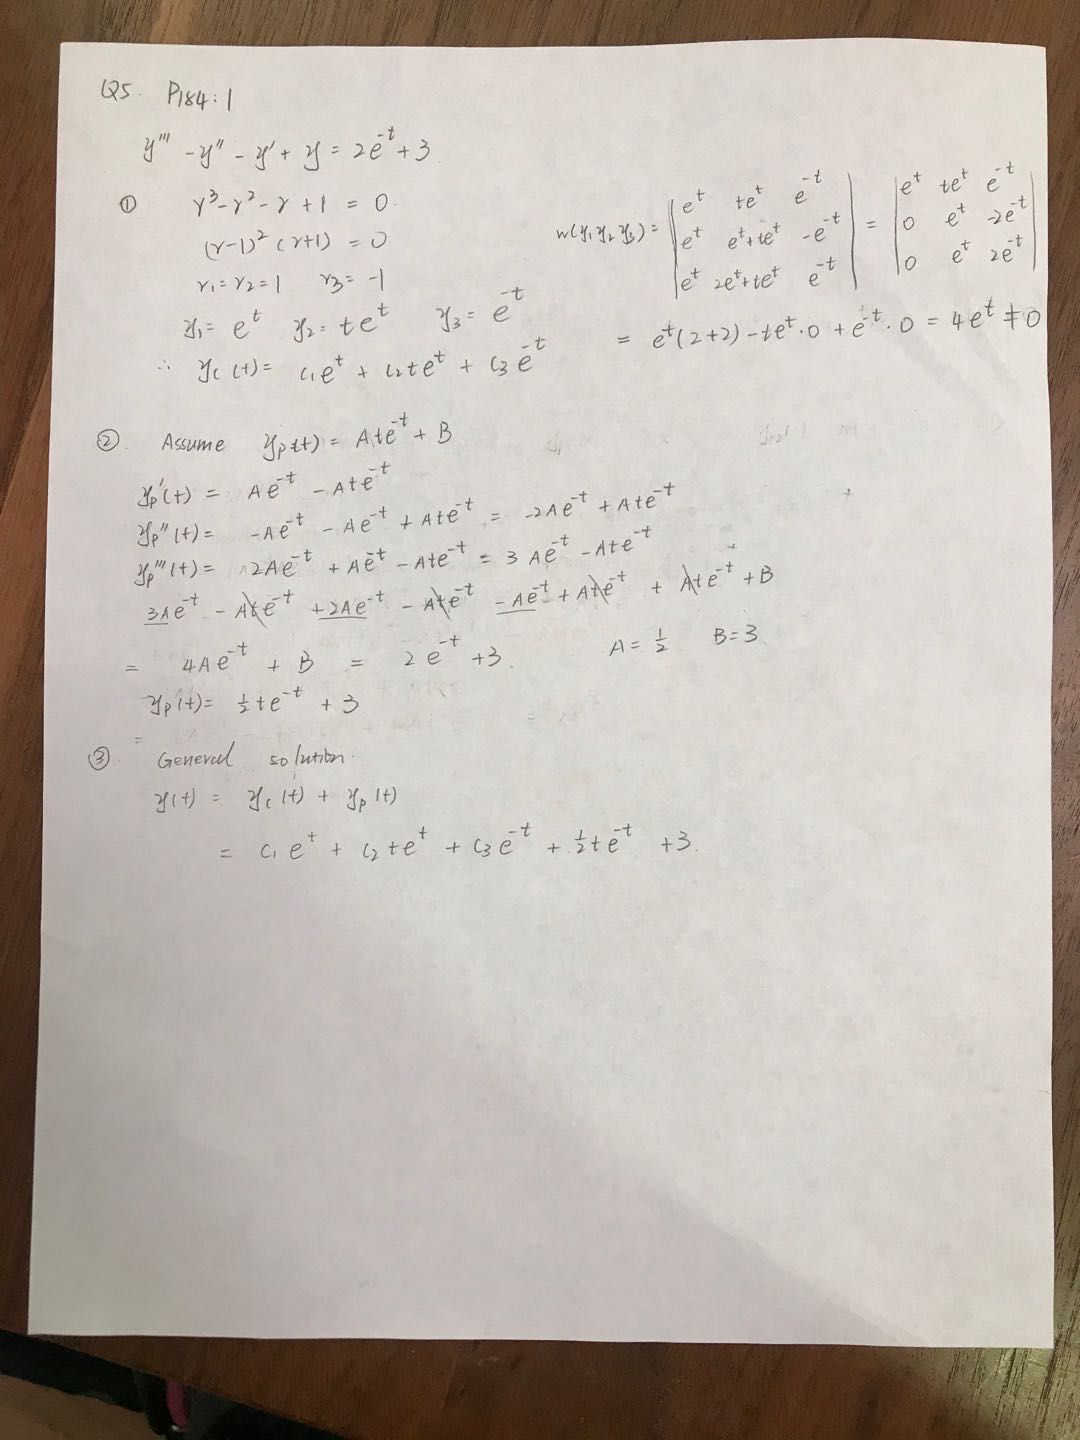 Q5. P184:1
y''' - y'' - y' + y = 2e^{-t} + 3
① r³ - r² - r + 1 = 0.
(r-1)² (r+1) = 0
r₁ = r₂ = 1 r₃ = -1
y₁ = e^t y₂ = te^t y₃ = e^{-t}
∴ y_c(t) = c₁e^t + c₂te^t + c₃e^{-t}
w(y₁ y₂ y₃) = | e^t te^t e^{-t} | = | e^t te^t e^{-t} |
| e^t e^t+te^t -e^{-t} | | 0 e^t -2e^{-t} |
| e^t 2e^t+te^t e^{-t} | | 0 e^t 2e^{-t} |
= e^t(2+2) - te^t·0 + e^{-t}·0 = 4e^t ≠ 0
② Assume y_p(t) = Ate^{-t} + B
y_p'(t) = Ae^{-t} - Ate^{-t}
y_p''(t) = -Ae^{-t} - Ae^{-t} + Ate^{-t} = -2Ae^{-t} + Ate^{-t}
y_p'''(t) = 2Ae^{-t} + Ae^{-t} - Ate^{-t} = 3Ae^{-t} - Ate^{-t}
3Ae^{-t} - Ate^{-t} + 2Ae^{-t} - Ate^{-t} - Ae^{-t} + Ate^{-t} + Ate^{-t} + B
= 4Ae^{-t} + B = 2e^{-t} + 3. A = 1/2 B = 3
y_p(t) = 1/2 te^{-t} + 3
=
③ General solution.
y(t) = y_c(t) + y_p(t)
= c₁e^t + c₂te^t + c₃e^{-t} + 1/2 te^{-t} + 3.